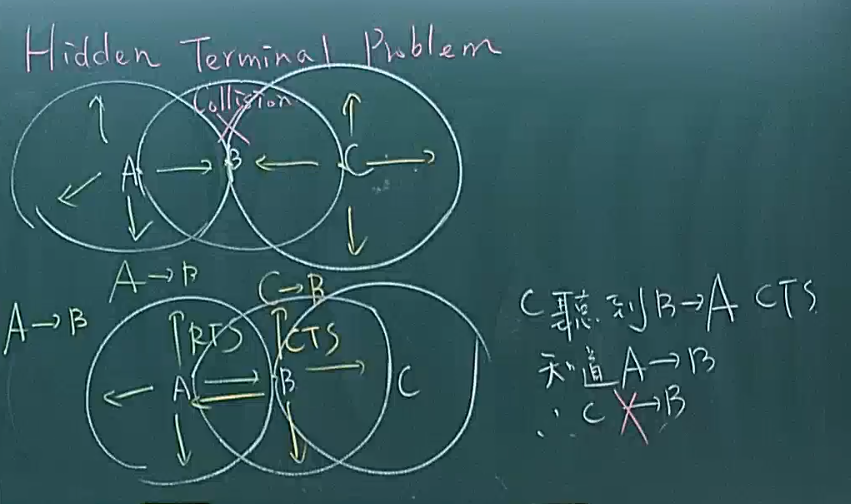 Hidden Terminal Problem
Collision
A → B ← C →
A → B
C → B
A → B
RTS
CTS
A B → C
C 聽到 B → A CTS
知道 A → B
∴ C → B